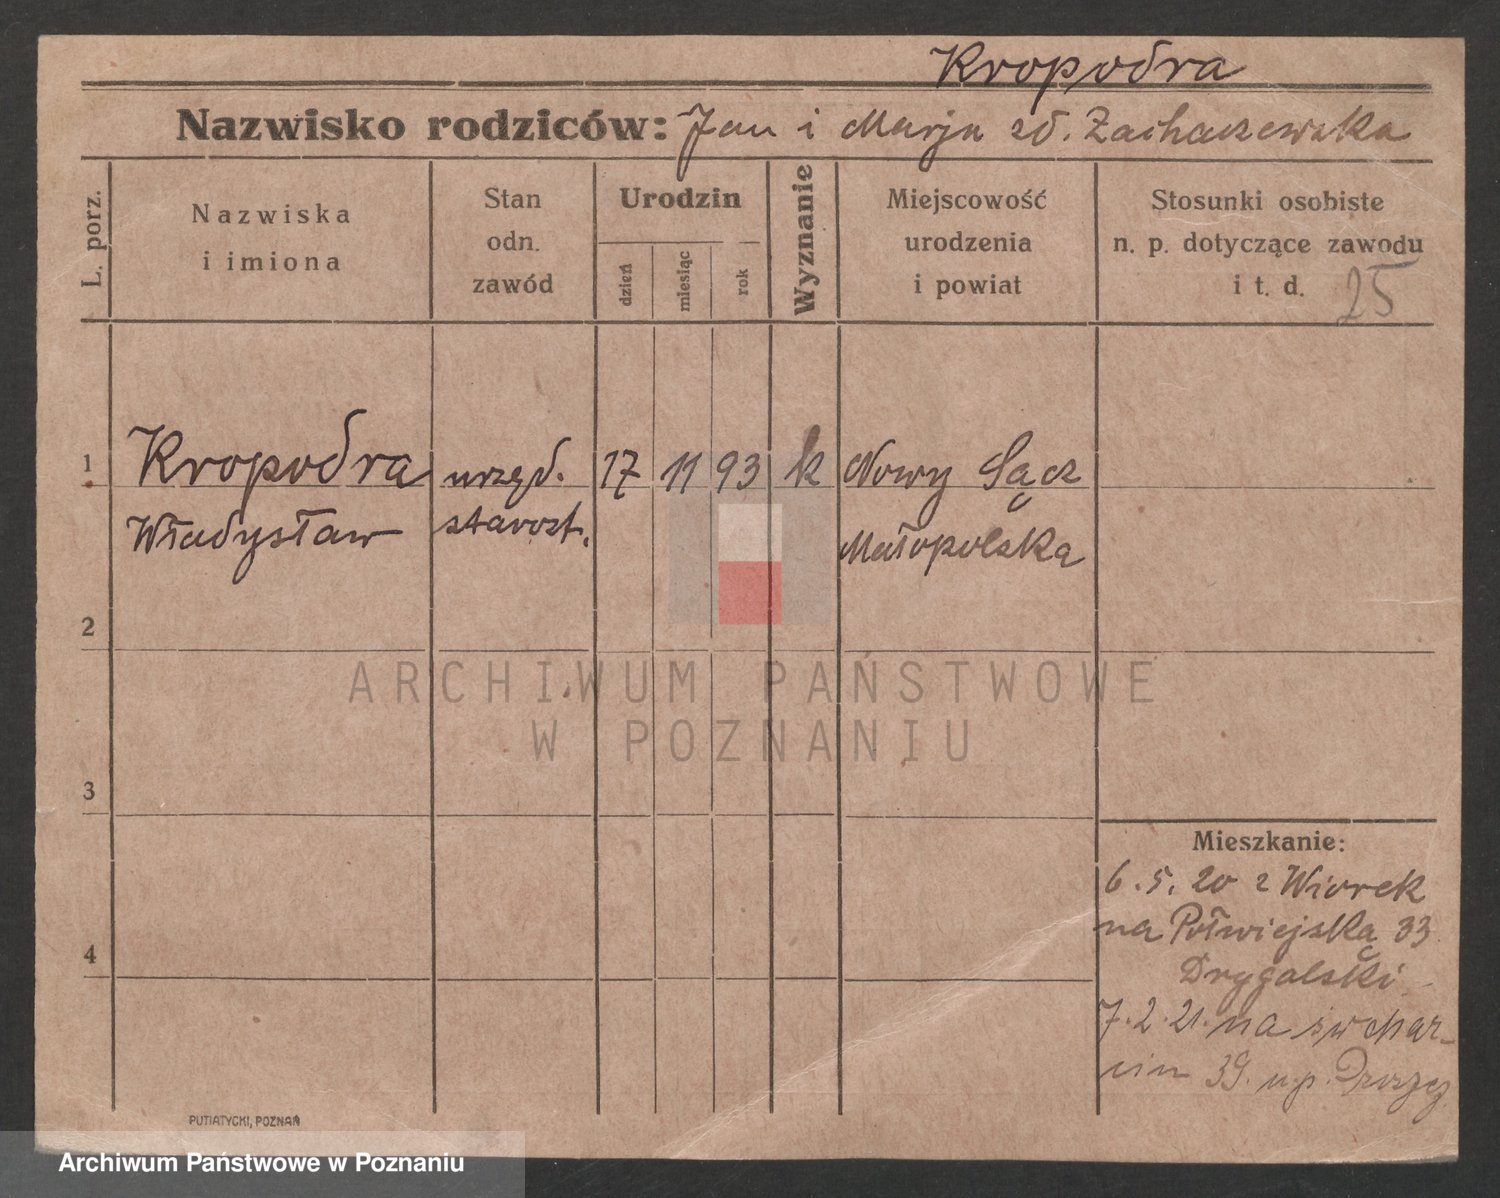 Kropodra
Nazwisko rodziców: Jan i Marja zd. Zachaczewska
L. porz.
Nazwiska
i imiona
Stan
odn.
zawód
Urodzin
dzień
miesiąc
rok
Wyznanie
Miejscowość
urodzenia
i powiat
Stosunki osobiste
n. p. dotyczące zawodu
i t. d. 25
1 Kropodra urzęd. 17 11 93 k Nowy Sącz
Władysław starost. Małopolska
2
ARCHIWUM PAŃSTWOWE
W POZNANIU
3
Mieszkanie:
6.5.20 z Wiorek
na Półwiejską 33
4
Drygalski
7.2.21. na św Mar-
cin 39. u.p.
PUTIATYCKI, POZNAŃ
Archiwum Państwowe w Poznaniu